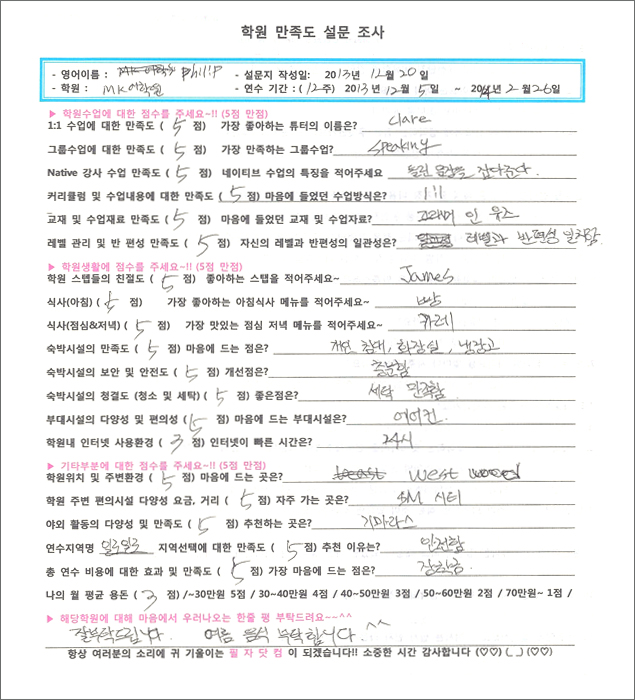 학원 만족도 설문 조사
- 영어이름 : Philip - 설문지 작성일: 2013년 12월 20일
- 학원 : MK어학원 - 연수 기간 : (12주) 2013년 12월 5일 ~ 2014년 2월 26일
▶ 학원수업에 대한 점수를 주세요~!! (5점 만점)
1:1 수업에 대한 만족도 ( 5 점) 가장 좋아하는 튜터의 이름은? Clare
그룹수업에 대한 만족도 ( 5 점) 가장 만족하는 그룹수업? speaking
Native 강사 수업 만족도 ( 5 점) 네이티브 수업의 특징을 적어주세요 틀린 문장을 잡아준다.
커리큘럼 및 수업내용에 대한 만족도 ( 5 점) 마음에 들었던 수업방식은? 1:1
교재 및 수업재료 만족도 ( 5 점) 마음에 들었던 교재 및 수업자료? 그래머 인 유즈
레벨 관리 및 반 편성 만족도 ( 5 점) 자신의 레벨과 반편성의 일관성은? 레벨과 반편성 일치함
▶ 학원생활에 점수를 주세요~!! (5점 만점)
학원 스탭들의 친절도 ( 5 점) 좋아하는 스탭을 적어주세요~ James
식사(아침) ( 5 점) 가장 좋아하는 아침식사 메뉴를 적어주세요~ 빵
식사(점심&저녁) ( 5 점) 가장 맛있는 점심 저녁 메뉴를 적어주세요~ 카레
숙박시설의 만족도 ( 5 점) 마음에 드는 점은? 개인 침대, 화장실, 냉장고
숙박시설의 보안 및 안전도 ( 5 점) 개선점은? 충분함
숙박시설의 청결도 (청소 및 세탁) ( 5 점) 좋은점은? 세탁 만족함
부대시설의 다양성 및 편의성 ( 5 점) 마음에 드는 부대시설은? 에어컨
학원내 인터넷 사용환경 ( 3 점) 인터넷이 빠른 시간은? 24시
▶ 기타부분에 대한 점수를 주세요~!! (5점 만점)
학원위치 및 주변환경 ( 5 점) 마음에 드는 곳은? west wood
학원 주변 편의시설 다양성 요금, 거리 ( 5 점) 자주 가는 곳은? SM 시티
야외 활동의 다양성 및 만족도 ( 5 점) 추천하는 곳은? 기마라스
연수지역명 일로일로 지역선택에 대한 만족도 ( 5 점) 추천 이유는? 안전함
총 연수 비용에 대한 효과 및 만족도 ( 5 점) 가장 마음에 드는 점은? 장학금
나의 월 평균 용돈 ( 3 점) /~30만원 5점 / 30~40만원 4점 / 40~50만원 3점 / 50~60만원 2점 / 70만원~ 1점 /
▶ 해당학원에 대해 마음에서 우러나오는 한줄 평 부탁드려요~^^
잘부탁드립니다. 여름 음식 부탁합니다. ^^
항상 여러분의 소리에 귀 기울이는 필 자 닷 컴 이 되겠습니다!! 소중한 시간 감사합니다 (♡♡) (_ _) (♡♡)